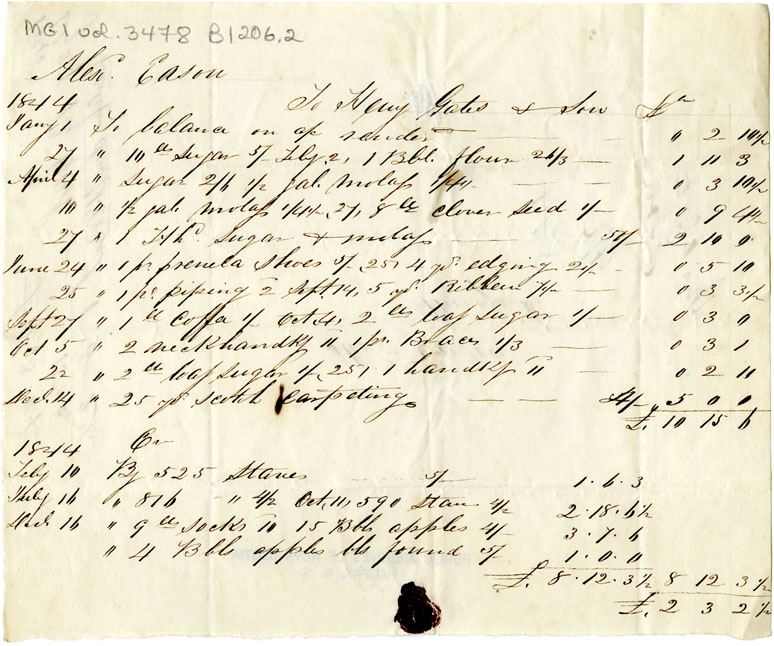 MG1 vol. 3478 B1206.2
Alexr. Eason
1844 To Henry Gates & Son Dr
Jany 1 To balance on a/c render — — — " 2 10½
27 " 10 lb Sugar 5/ Feby 2, 1 Bbl. flour 26/3 — 1 11 3
April 4 " Sugar 2/6 ½ gal. molas 1/4½ — 0 3 10½
10 " ½ gal. molas 1/4½, 27, 8 lb clover seed 1/— 0 9 4½
27 " 1 Hhd. Sugar & molas — 50/ 2 10 0
June 24 " 1 pr prenela Shoes 5/, 25, 4 yd edging 2½ — 0 5 10
25 " 1 ps. piping 2 Sept 14, 5 yd Ribbon — 0 3 3½
Sept 27 " 1 lb Coffa 1/ Oct 4, 2 lbs loaf Sugar 1/— 0 3 0
Oct 5 " 2 neckhandkf 11 1 pr. Braces 1/3 — 0 3 1
22 " 2 lb loaf Sugar 1/, 25, 1 handkf 11 — 0 2 11
Decd. 14 " 25 yd Scotch Carpeting — — 4/ 5 0 0
£. 10 15 6
1844 Cr
Feby 10 By 525 Staves 5/ 1. 6. 3
July 16 " 816 " 4/2 Oct, 11, 590 Stav 4/2 2. 18. 6½
Decd. 16 " 9 lb socks 10 15 Bbls apples 4/— 3. 7. 6
" 4 Bbls apples bls found 5/ 1. 0. 0
£. 8. 12. 3½ 8 12 3½
£. 2 3 2½